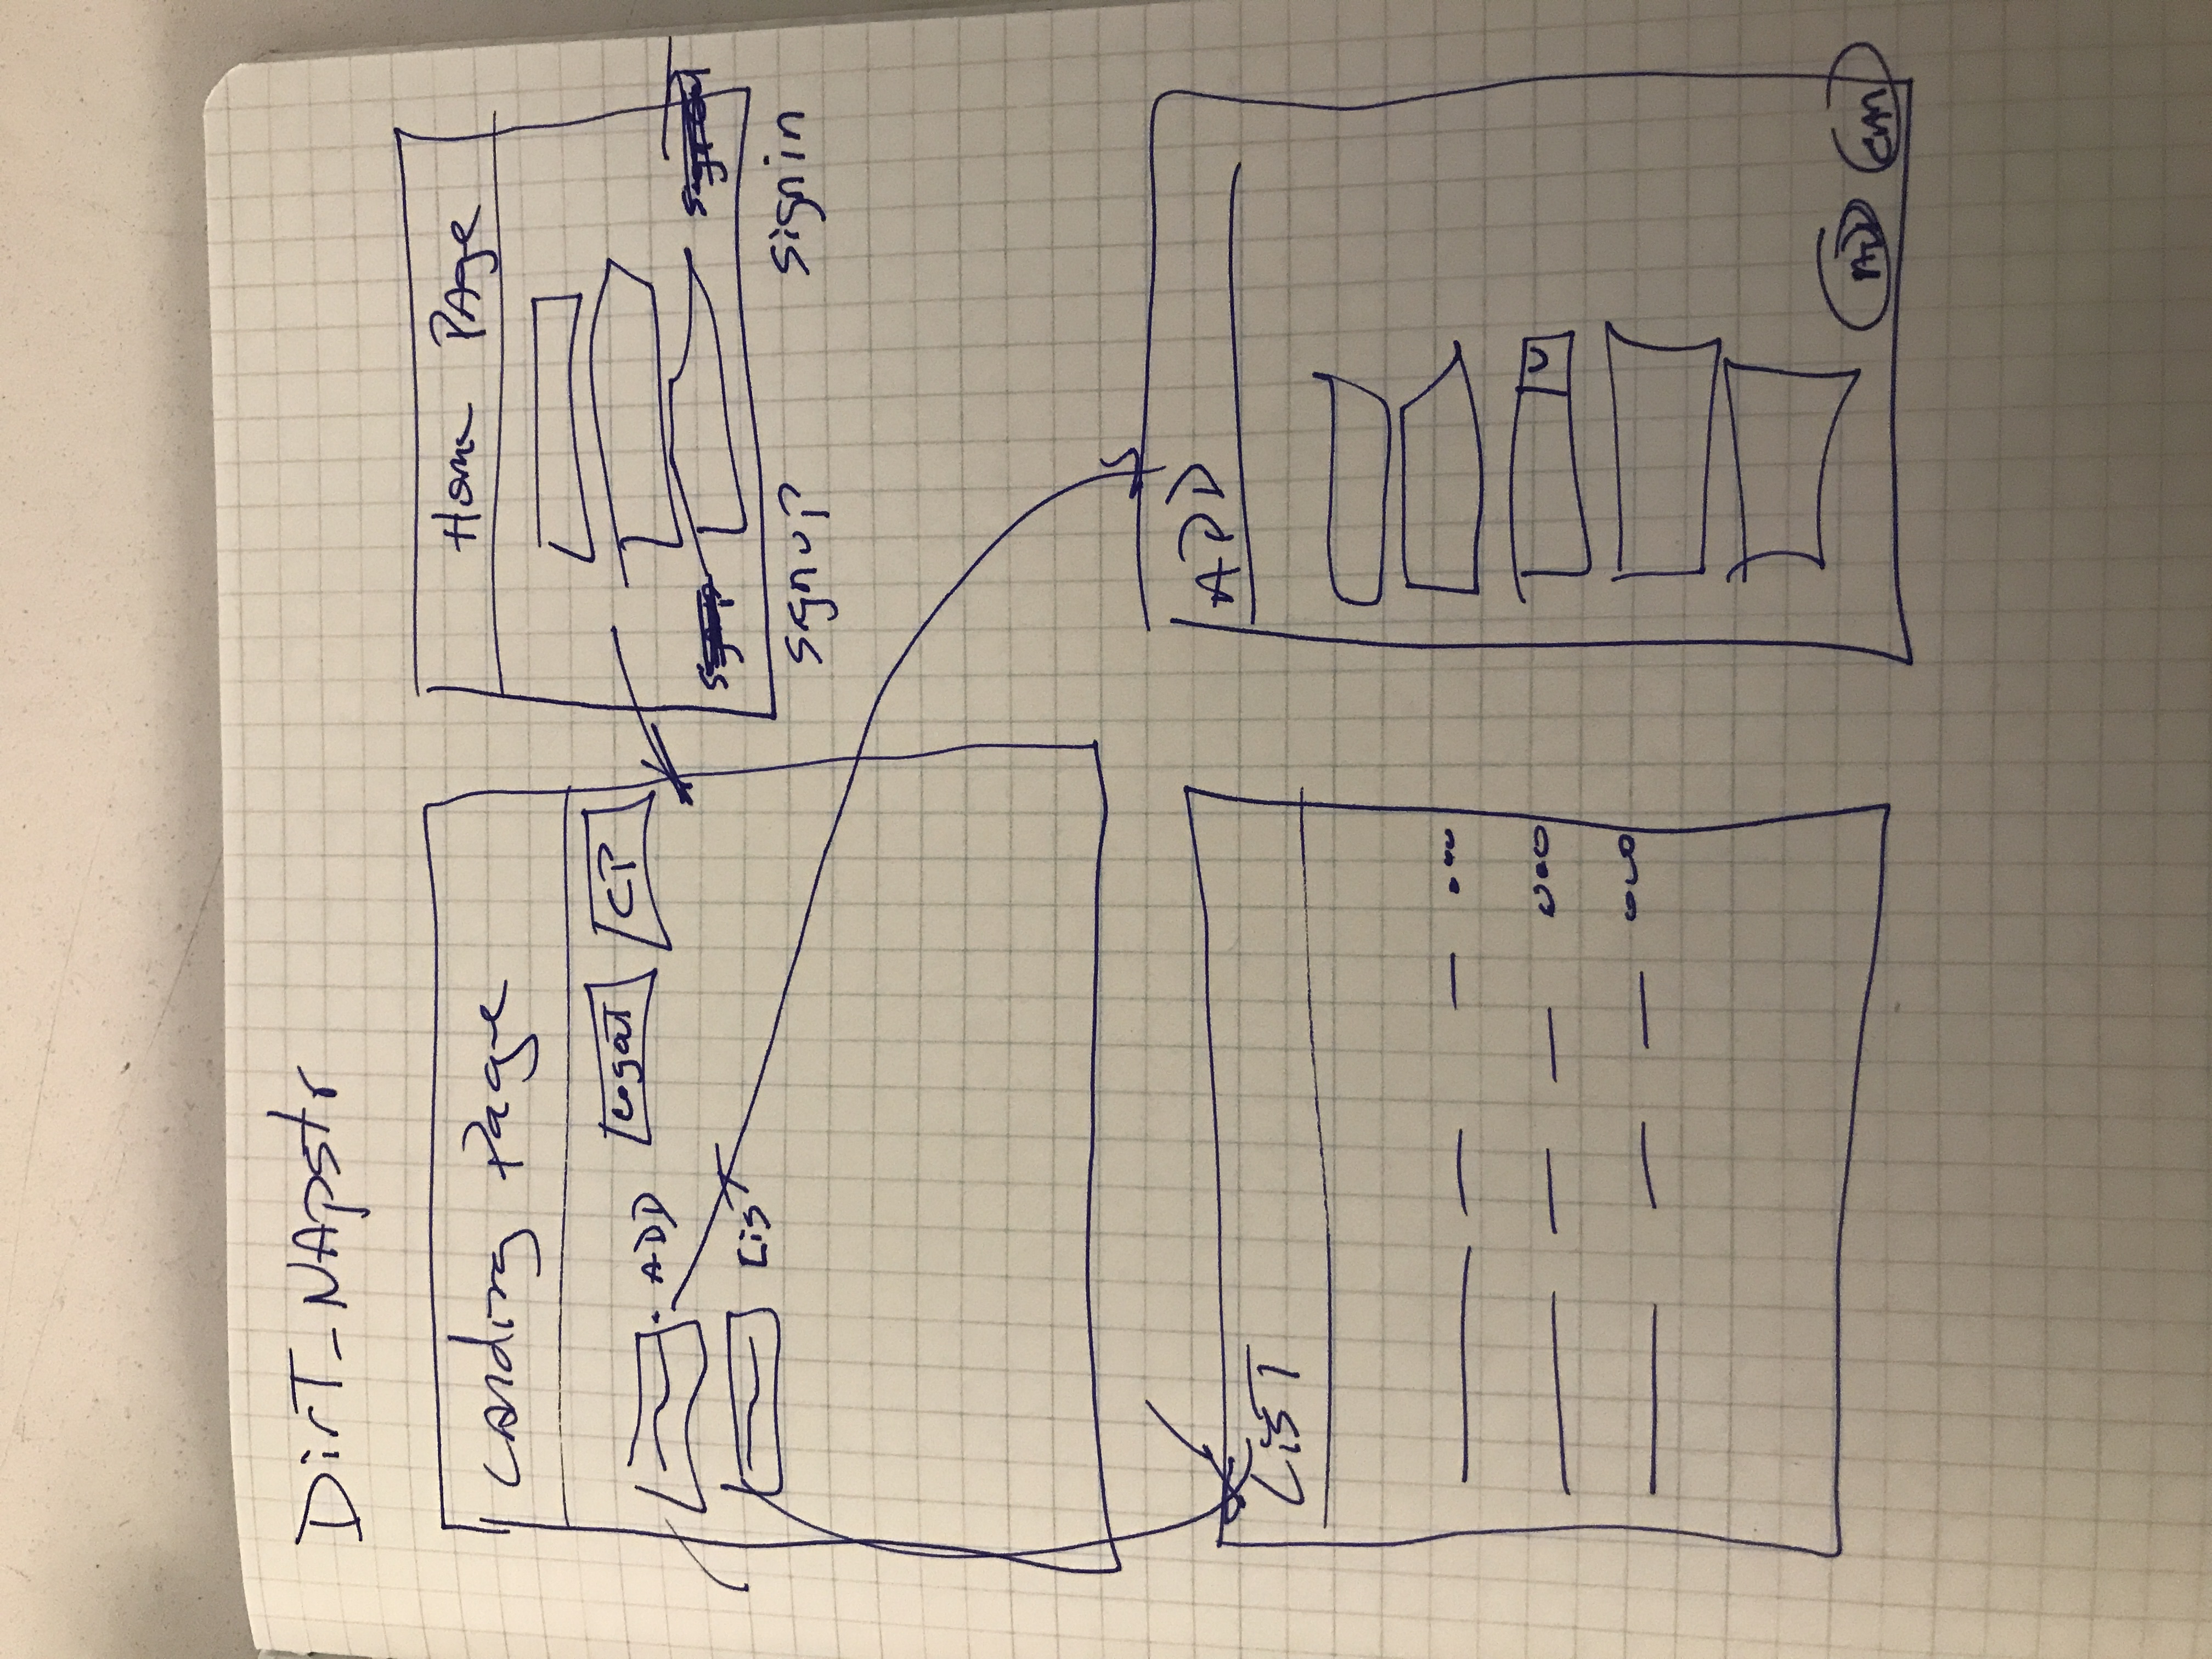 DirT_NApstr
Landing Page
Logout
CP
ADD
List
Home PAge
signup
signin
LisT
ADD
ADD